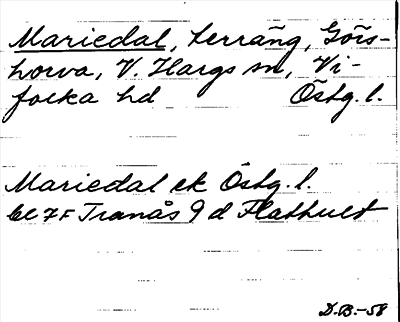 Mariedal, terräng, Görs-
horva, V. Hargs sn, Vi-
folka hd Östg. l.
Mariedal ek Östg. l.
bl 7F Tranås 9 d Flathult
D.B.-58